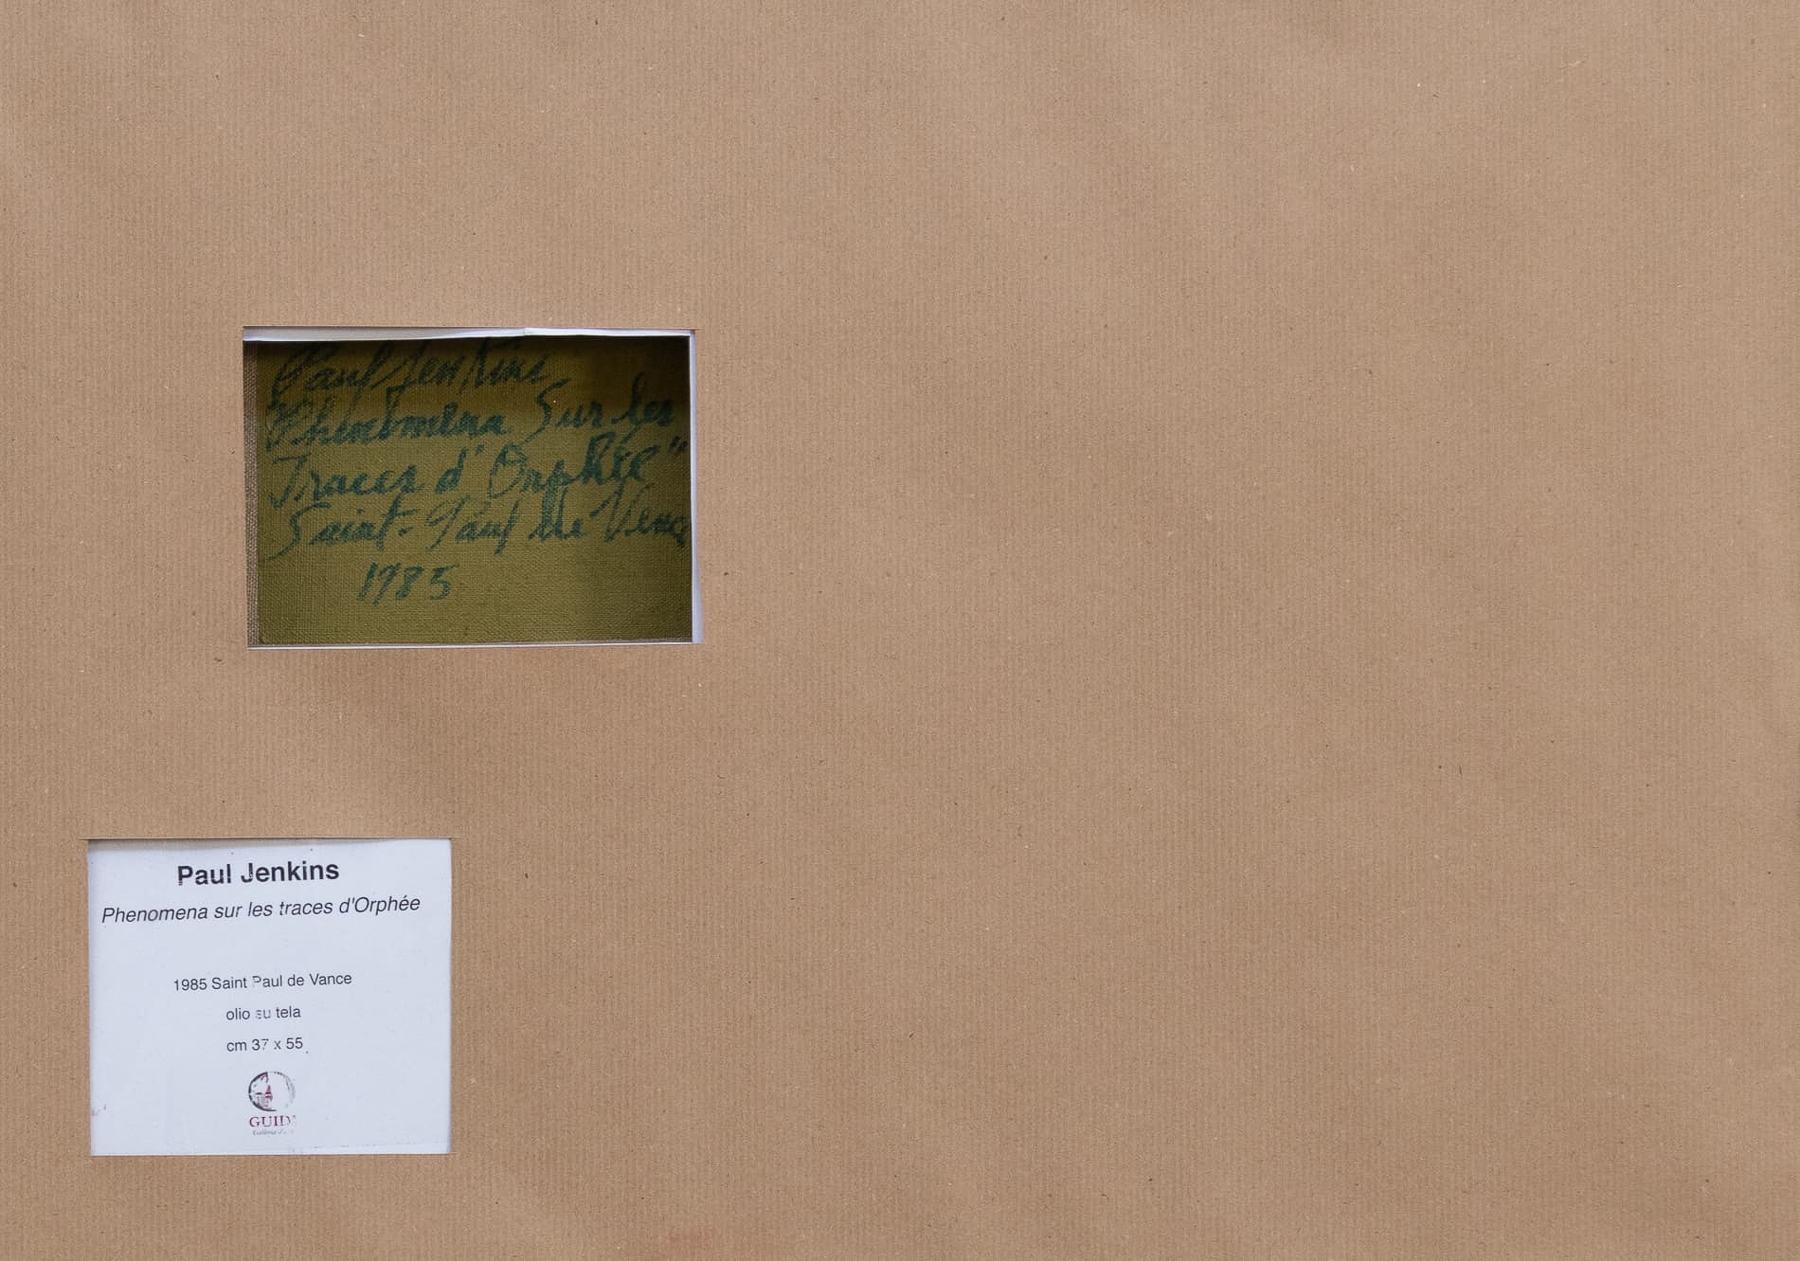 Paul Jenkins
"Phenomena Sur les
Traces d'Orphée"
Saint-Paul de Vence
1985
Paul Jenkins
Phenomena sur les traces d'Orphée
1985 Saint Paul de Vance
olio su tela
cm 37 x 55